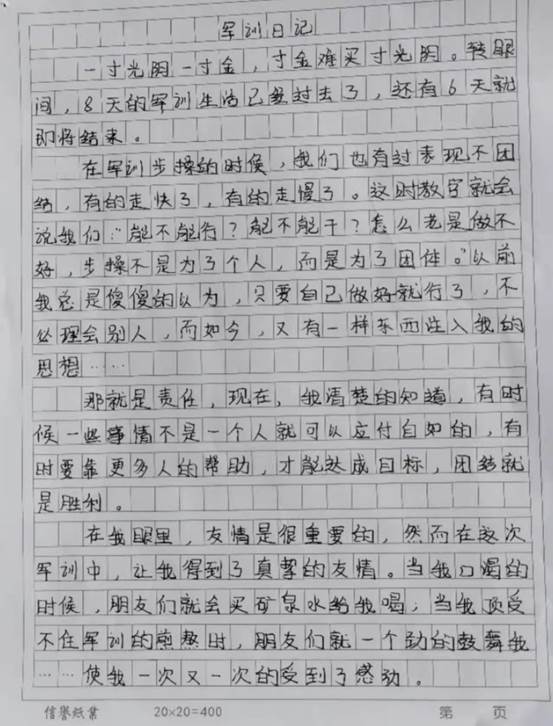 军训日记
一寸光阴一寸金，寸金难买寸光阴。转眼
间，8天的军训生活已经过去了，还有6天就
即将结束。
在军训步操的时候，我们也有过表现不团
结，有的走快了，有的走慢了。这时教官就会
说我们："能不能行？能不能干？怎么老是做不
好，步操不是为了个人，而是为了团体。"以前
我总是傻傻的以为，只要自己做好就行了，不
必理会别人，而如今，又有一样东西注入我的
思想……
那就是责任，现在，我清楚的知道，有时
候一些事情不是一个人就可以应付自如的，有
时要靠更多人的帮助，才能达成目标，团结就
是胜利。
在我眼里，友情是很重要的，然而在这次
军训中，让我得到了真挚的友情。当我口渴的
时候，朋友们就会买矿泉水给我喝；当我顶受
不住军训的煎熬时，朋友们就一个劲的鼓舞我
……使我一次又一次的受到了感动。
信誉纸业 20×20=400 第 页